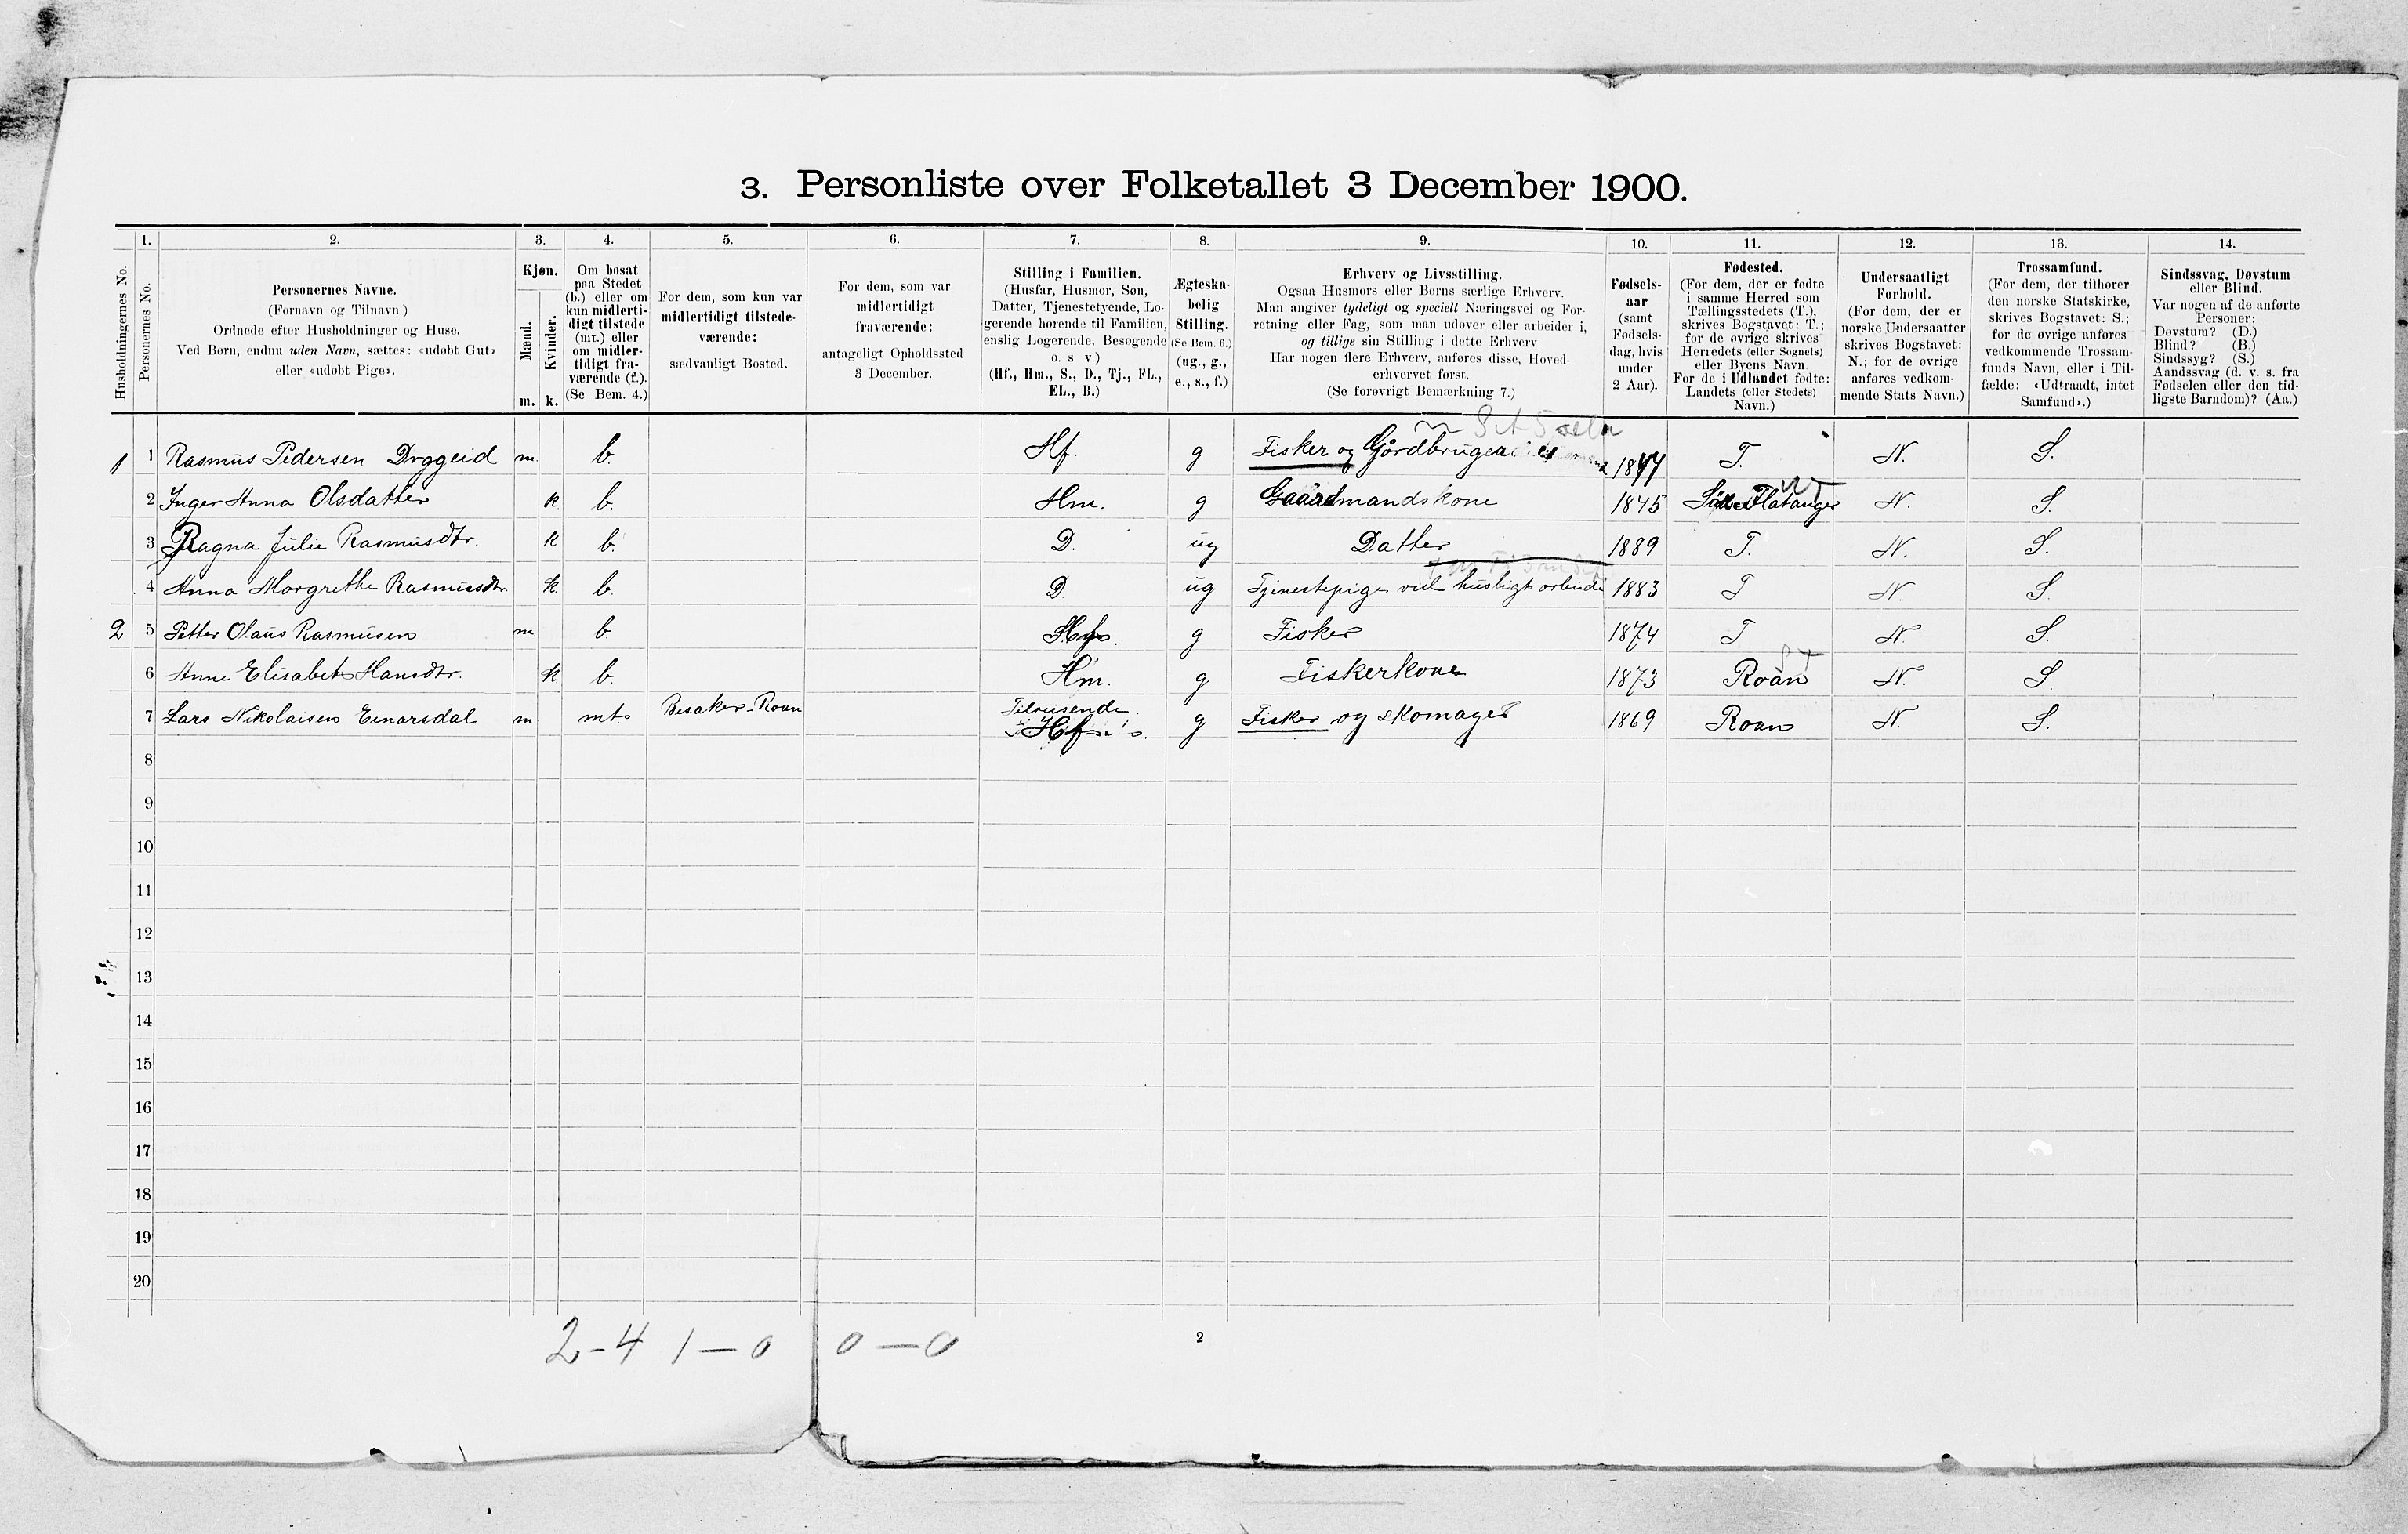 3. Personliste over Folketallet 3 December 1900.
Husholdningernes No.
1. Personernes No.
2. Personernes Navne.
(Fornavn og Tilnavn)
Ordnede efter Husholdninger og Huse.
Ved Børn, endnu uden Navn, sættes: «udøbt Gut»
eller «udøbt Pige».
3. Kjøn.
Mænd. m.
Kvinder. k.
4. Om bosat
paa Stedet
(b.) eller om
kun midlerti-
digt tilstede
(mt.) eller
om midler-
tidigt fra-
værende (f.).
(Se Bem. 4.)
5. For dem, som kun var
midlertidigt tilstede-
værende:
sædvanligt Bosted.
6. For dem, som var
midlertidigt
fraværende:
antageligt Opholdssted
3 December.
7. Stilling i Familien.
(Husfar, Husmor, Søn,
Datter, Tjenestetyende, Lo-
gerende hørende til Familien,
enslig Logerende, Besøgende
o. s v.)
(Hf., Hm., S., D., Tj., FL.,
EL., B.)
8. Ægteska-
belig
Stilling.
(Se Bem. 6.)
(ug., g.,
e., s., f.)
9. Erhverv og Livsstilling.
Ogsaa Husmors eller Børns særlige Erhverv.
Man angiver tydeligt og specielt Næringsvei og For-
retning eller Fag, som man udøver eller arbeider i,
og tillige sin Stilling i dette Erhverv.
Har nogen flere Erhverv, anføres disse, Hoved-
erhvervet først.
(Se forøvrigt Bemærkning 7.)
10. Fødsels-
aar
(samt
Fødsels-
dag, hvis
under
2 Aar).
11. Fødested.
(For dem, der er fødte
i samme Herred som
Tællingsstedets (T.),
skrives Bogstavet: T.;
for de øvrige skrives
Herredets (eller Sognets)
eller Byens Navn.
For de i Udlandet fødte:
Landets (eller Stedets)
Navn.)
12. Undersaatligt
Forhold.
(For dem, der er
norske Undersaatter
skrives Bogstavet:
N.; for de øvrige
anføres vedkom-
mende Stats Navn.)
13. Trossamfund.
(For dem, der tilhører
den norske Statskirke,
skrives Bogstavet: S.;
for de øvrige anføres
vedkommende Trossam-
funds Navn, eller i Til-
fælde: «Udtraadt, intet
Samfund».)
14. Sindssvag, Døvstum
eller Blind.
Var nogen af de anførte
Personer:
Døvstum? (D.)
Blind? (B.)
Sindssyg? (S.)
Aandssvag (d. v. s. fra
Fødselen eller den tid-
ligste Barndom)? (Aa.)
1 1 Rasmus Pedersen m. b. Hf. g Fisker og Gårdbruger T. N. S.
2 Inger Anna Olsdatter k b. Hm. g Gaardmandskone 1845 Flatanger N. S.
3 Ragna Julie Rasmusdtr. k b. D. ug Datter 1889 T. N. S.
4 Anna Margrethe Rasmusdtr. k. b. D. ug Tjenestepige ved husligt arbeide 1883 T N. S.
2 5 Petter Olaus Rasmusen m. b. Hf. g Fisker 1874 T N. S.
6 Anne Elisabet Hansdtr. k b. Hm. g Fiskerkone 1873 Roan N. S.
7 Lars Nikolaisen Einarsdal m mt. Besaker-Roan Tilreisende
Hf g Fisker og skomager 1869 Roan N. S.
8
9
10
11
12
13
14
15
16
17
18
19
20
2-4 1-0 0-0
2